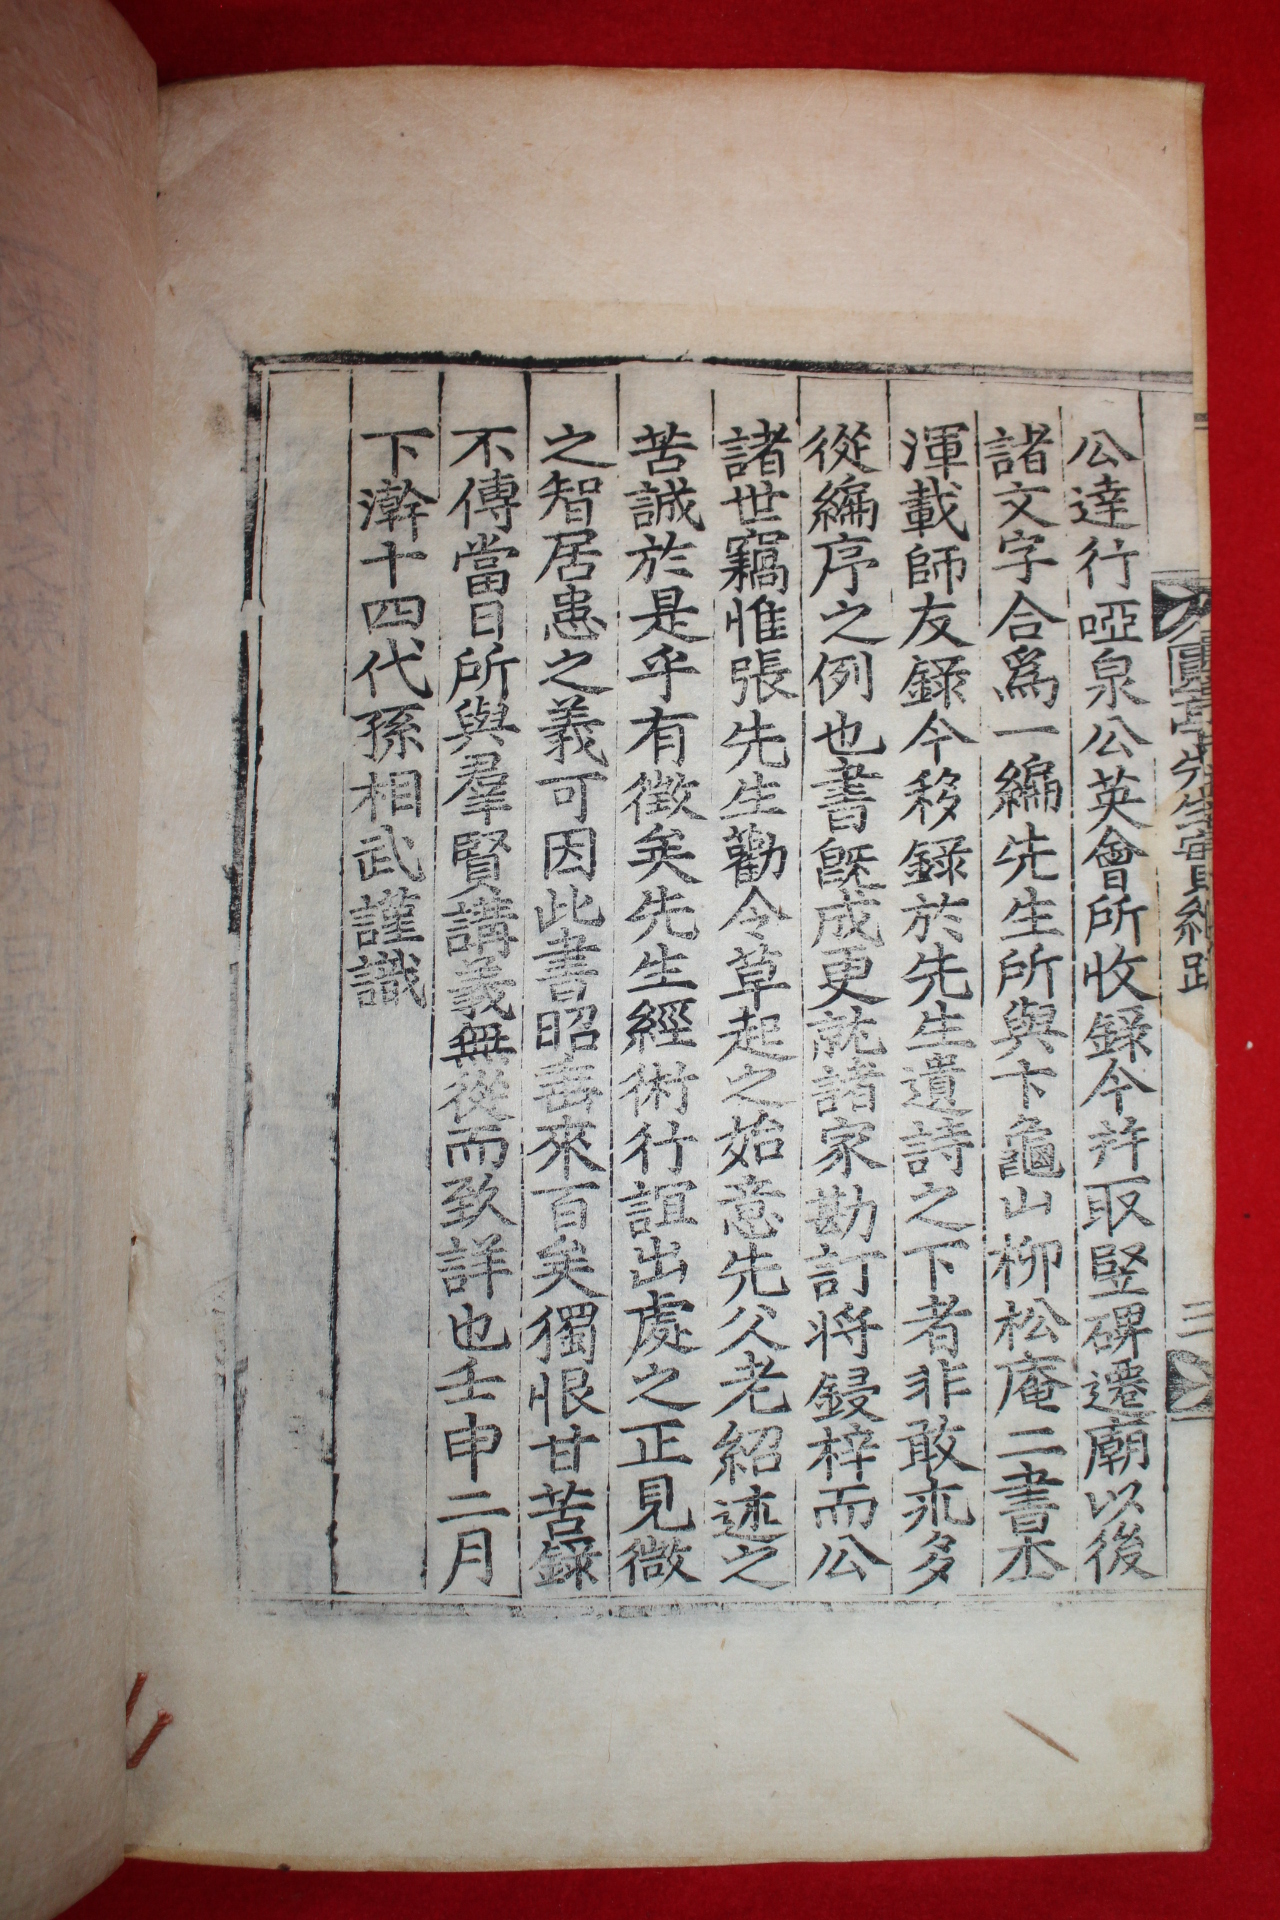 公達行啞泉公英會所收錄今幷取竪碑遷廟以後
諸文字合爲一編先生所與卞龜山柳松庵二書呆
渾載師友錄今移錄於先生遺詩之下者非敢求多
從編序之例也書旣成更就諸家勘訂將鋟梓而公
諸世竊惟張先生勸令草起之始意先父老紹述之
苦誠於是乎有徵矣先生經術行誼出處之正見微
之智居患之義可因此書昭垂來百矣獨恨甘苦錄
不傳當日所與羣賢講義無從而致詳也壬申二月
下澣十四代孫相武謹識
先生實紀跋
三